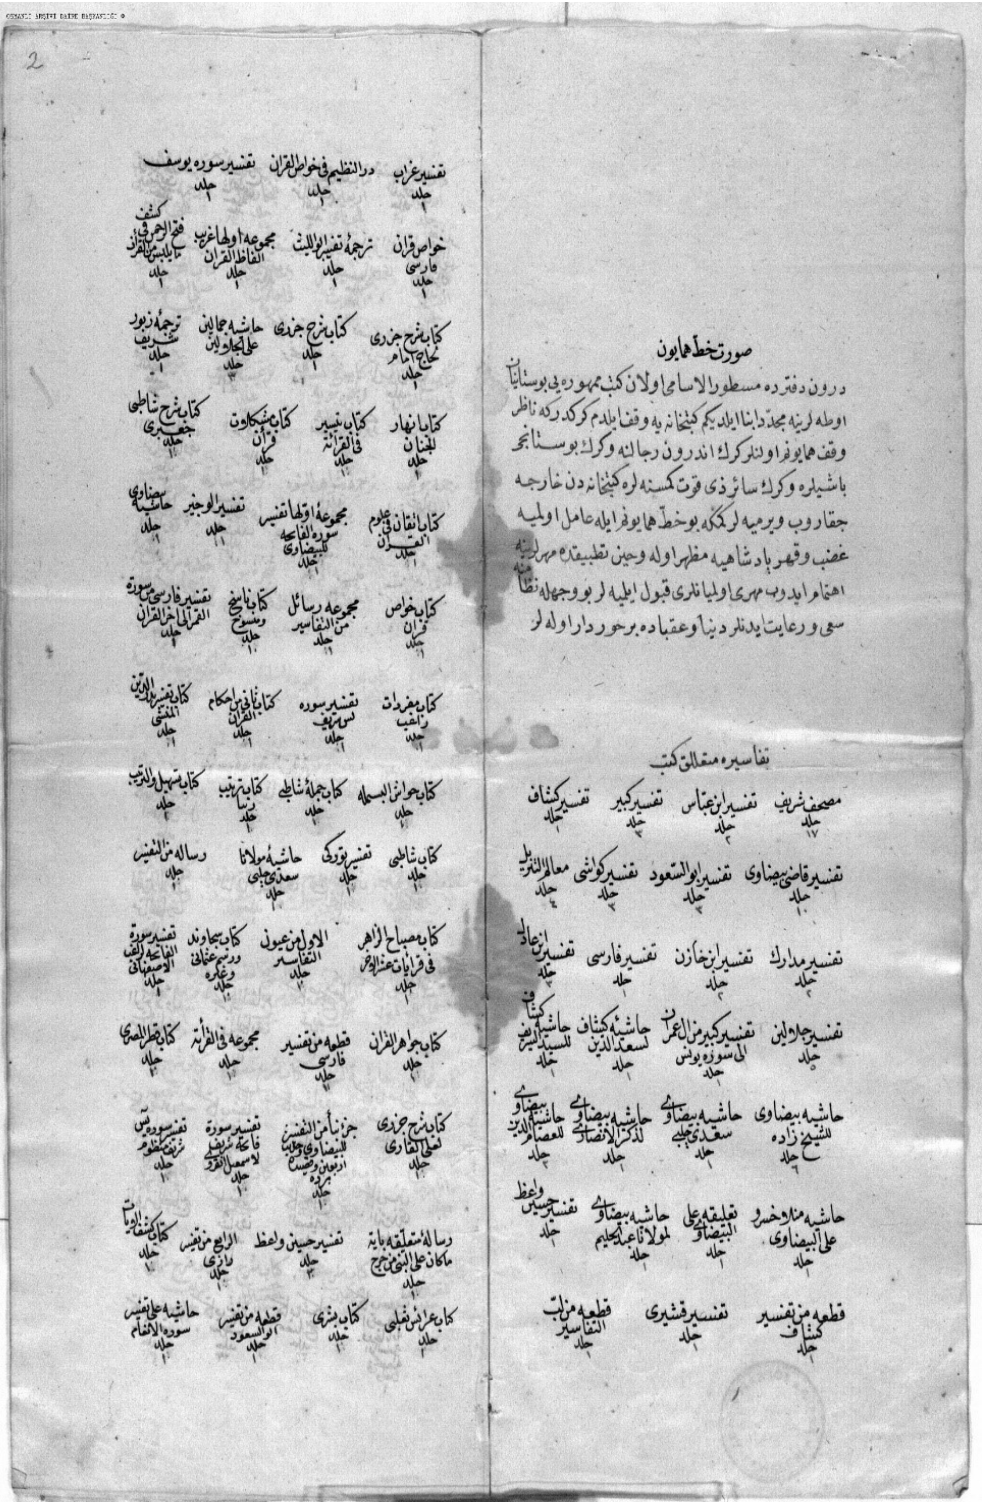 OSMANLI ARŞİVİ DAİRE BAŞKANLIĞI
2
صورت خط همايون
درون دفترده مسطور الاسامی اولان كتب ممهوره یی بوستانیان
اوطه لرینه مجددا بنا ایلدیكم كتبخانه یه وقف ایلدم كركدركه ناظر
وقف همایونم اولنلر كرك اندرون رجالنه و كرك بوستانجی
باشیلره و كرك سائر ذی قوت كمسنه لره كتبخانه دن خارجه
چقاروب ویرمیه لر كمكه بو خط همایونم ایله عامل اولمیه
غضب و قهر پادشاهیه مظهر اوله و حین تطبیقده مهرلرینه
اهتمام ایدوب مهری اولمیانلری قبول ایلمیه لر بو وجهله نظامنه
سعی و رعایت ایدنلر دنیا و عقباده برخوردار اوله لر
تفاسیره متعلق كتب
مصحف شریف جلد ١٧ تفسیر ابن عباس جلد ٢ تفسیر كبیر جلد ٣ تفسیر كشاف جلد ١
تفسیر قاضی بیضاوی جلد ١٠ تفسیر ابو السعود جلد ٣ تفسیر كواشی جلد ٣ معالم التنزیل جلد ٤
تفسیر مدارك جلد ٢ تفسیر ابن خازن جلد ٢ تفسیر فارسی جلد ١ تفسیر ابن عادل جلد
تفسیر جلالین جلد ٥ تفسیر كبیر من ال عمران الی سوره یونس جلد ١ حاشیۀ كشاف لسعد الدین جلد ١ حاشیۀ كشاف للسید الشریف جلد ١
حاشیه بیضاوی للشیخ زاده جلد ٦ حاشیه بیضاوی سعدی چلبی جلد ١ حاشیه بیضاوی لذكر الانصاری جلد ١ حاشیه بیضاوی للعصام الدین جلد ٢
حاشیه منلا خسرو علی البیضاوی جلد ١ تعلیقه علی البیضاوی جلد ١ حاشیه بیضاوی لمولانا عبد الحلیم جلد ١ تفسیر حسین واعظ جلد ١
قطعه من تفسیر كشاف جلد ١ تفسیر قشیری جلد ١ قطعه من لب التفاسیر جلد ١
تفسیر غرایب جلد ١ در النظیم فی خواص القران جلد ١ تفسیر سوره یوسف جلد ١
خواص قران فارسی جلد ١ ترجمۀ تفسیر ابو اللیث جلد ١ مجموعه اولها غریب الفاظ القران جلد ١ كشف فتح الرحمن فی ما یلتبس من القران جلد ١
كتاب شرح جزری جلد ١ كتاب شرح جزری جلد ١ حاشیه جمالین علی الجلالین جلد ٣ ترجمۀ زبور شریف جلد ١
كتاب انهار الجنان جلد ١ كتاب تیسیر فی القرائة جلد ١ كتاب مشكلات قران جلد ١ كتاب شرح شاطبی جعبری جلد ١
كتاب اتقان فی علوم القران جلد ١ مجموعۀ اولها تفسیر سورة الفاتحه للبیضاوی جلد ١ تفسیر الوجیز جلد ١ حاشیه بیضاوی جلد ١
كتاب خواص قران جلد ١ مجموعه رسائل من التفاسیر جلد ١ كتاب ناسخ و منسوخ جلد ١ تفسیر فارسی من سورة القمر الی اخر القران جلد ١
كتاب مفردات راغب جلد ١ تفسیر سوره یس شریف جلد ١ كتاب ثانی من احكام القران جلد ١ كتاب تفسیر بدر الدین جلد ١
كتاب حواش البسمله جلد ١ كتاب جملۀ شاطبی جلد ١ كتاب ترتیب زیبا جلد ١ كتاب تسهیل و الترتیب جلد ١
كتاب شاطبی جلد ١ تفسیر جلد ١ حاشیۀ مولانا سعدی چلبی جلد رساله من التفسیر جلد ١
كتاب مصباح الزاهر فی قرایات جلد ١ الاول من عیون التفاسیر جلد ١ كتاب سجاوند و رسم عثمانی و غیره جلد ١ تفسیر سورة الفاتحه الاصفهانی جلد ١
كتاب جواهر القران جلد ١ قطعه من تفسیر فارسی جلد ١ مجموعه فی القرأئة جلد ١ كتاب قطر المصری جلد ١
كتاب شرح جزری لعلی القاری جلد ١ جزء نبأ من التفسیر للبیضاوی اربعین و قصیده برده جلد ١ تفسیر سورة فاتحه شریف جلد ١ تفسیر سوره یس شریف منظوم جلد ١
رسالۀ متعلقه بایة ماكان علی النبی من حرج جلد ١ تفسیر حسین واعظ جلد ٣ الرابع من تفسیر رازی جلد ١ كتاب كشف الایات جلد ١
كتاب عرائس ثعلبی جلد ١ كتاب بشری جلد ١ قطعه من تفسیر ابو السعود جلد ١ حاشیه علی تفسیر سوره الانعام جلد ١